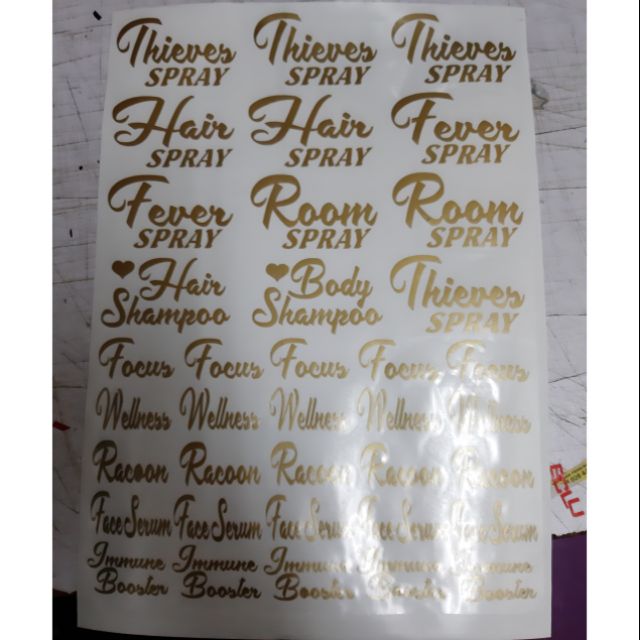 Thieves Thieves Thieves
SPRAY SPRAY SPRAY
Hair Hair Fever
SPRAY SPRAY SPRAY
Fever Room Room
SPRAY SPRAY SPRAY
Hair Body Thieves
Shampoo Shampoo SPRAY
Focus Focus Focus Focus Focus
Wellness Wellness Wellness Wellness Wellness
Racoon Racoon Racoon Racoon Racoon
Face Serum Face Serum Face Serum Face Serum Face Serum
Immune Immune Immune Immune Immune
Booster Booster Booster Booster Booster